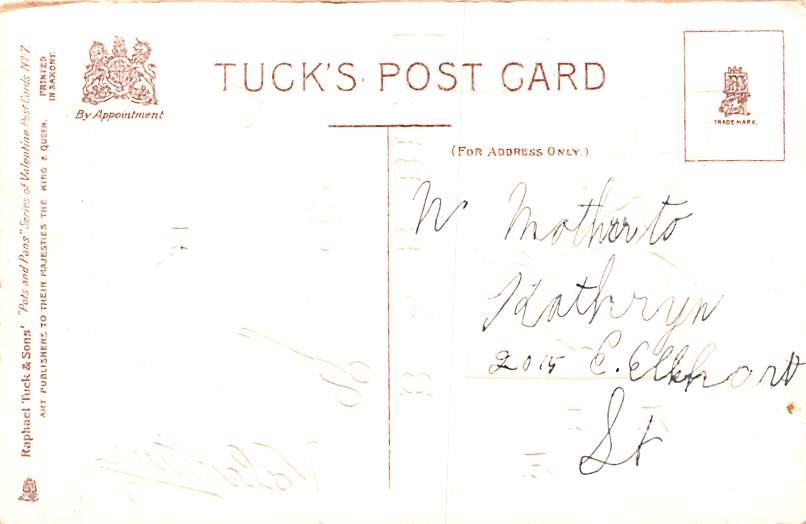 TUCK'S POST CARD
By Appointment
TRADE MARK.
(FOR ADDRESS ONLY.)
Raphael Tuck & Sons' "Pots and Pans" Series of Valentine Post Cards No 7.
ART PUBLISHERS TO THEIR MAJESTIES THE KING & QUEEN.
PRINTED
IN SAXONY.
Mother to
Kathryn
2015 E. Elkhart
St